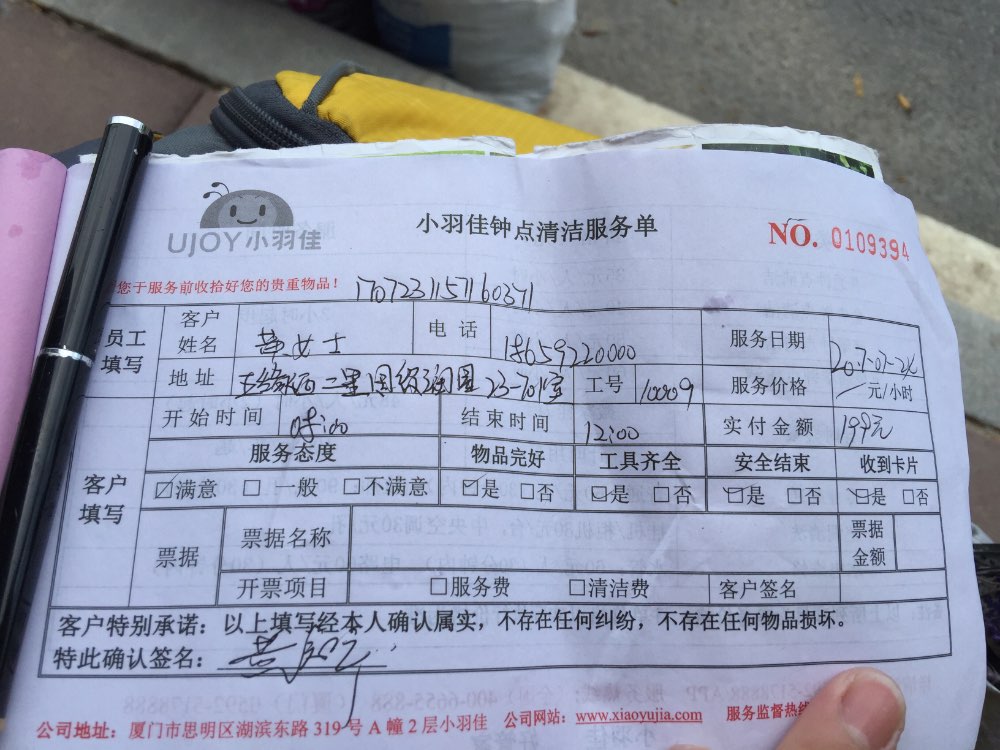 UJOY小羽佳
小羽佳钟点清洁服务单
NO. 0109394
您于服务前收拾好您的贵重物品！
17072311571160371
员工填写 客户姓名 黄女士 电话 18659220000 服务日期
地址 23-701室 工号 10009 服务价格 元/小时
开始时间 结束时间 12:00 实付金额 199元
服务态度 物品完好 工具齐全 安全结束 收到卡片
客户填写 ☑满意 □一般 □不满意 ☑是 □否 ☑是 □否 ☑是 □否 ☑是 □否
票据 票据名称 票据金额
开票项目 □服务费 □清洁费 客户签名
客户特别承诺：以上填写经本人确认属实，不存在任何纠纷，不存在任何物品损坏。
特此确认签名：
公司地址：厦门市思明区湖滨东路 319 号 A 幢 2 层小羽佳 公司网站：www.xiaoyujia.com 服务监督热线